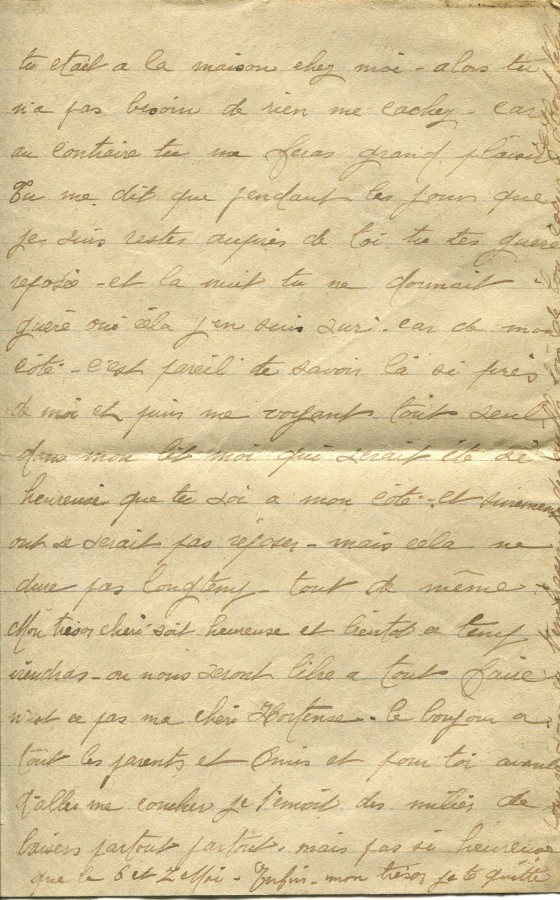 tu etait a la maison chez moi - alors tu
n'a pas besoin de rien me cachez - car
au contraire tu me feras grand plaisir
Tu me dit que pendant les jours que
je suis restes auprès de toi tu tes guere
reposé - et la nuit tu ne dormait
guère oui cela j'en suis sure. car de mon
côté - c'est pareil te savoir là si près
de moi et puis me voyant tout seul
dans mon lit moi qui serait été si
heureuse que tu soi a mon côté - et surement
ont se serait pas reposer - mais cela ne
dure pas longtemp tout de même
Mon trésor chéri soit heureuse et bientot ce temp
viendras - ou nous seront libre a tout faire
n'est ce pas ma chéri Hortense - le bonjour a
tout les parents et Amis et pour toi avant
d'aller me coucher je t'envoit des milier de
baisers partout partout, mais pas si heureuse
que le 6 et 7 Mai - Enfin - mon trésor je te quitte